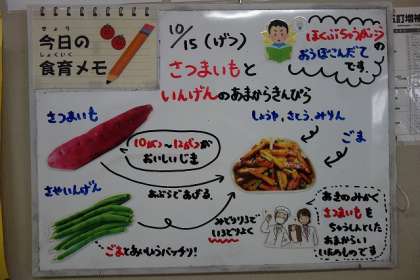 きょう
今日の
しょくいく
食育メモ
10/15（げつ）
さつまいもと
いんげんのあまからきんぴら
の
おうぼこんだて
です。
さつまいも
10がつ〜12がつが
おいしいじき
しょうゆ、さとう、みりん
ごま
さやいんげん
あぶらであげる。
みどりいろで
いろどりよく
ごまとあいしょうバッチリ！
あきのみかく
さつまいもを
ちゅうしんとした
あまからい
いためものです